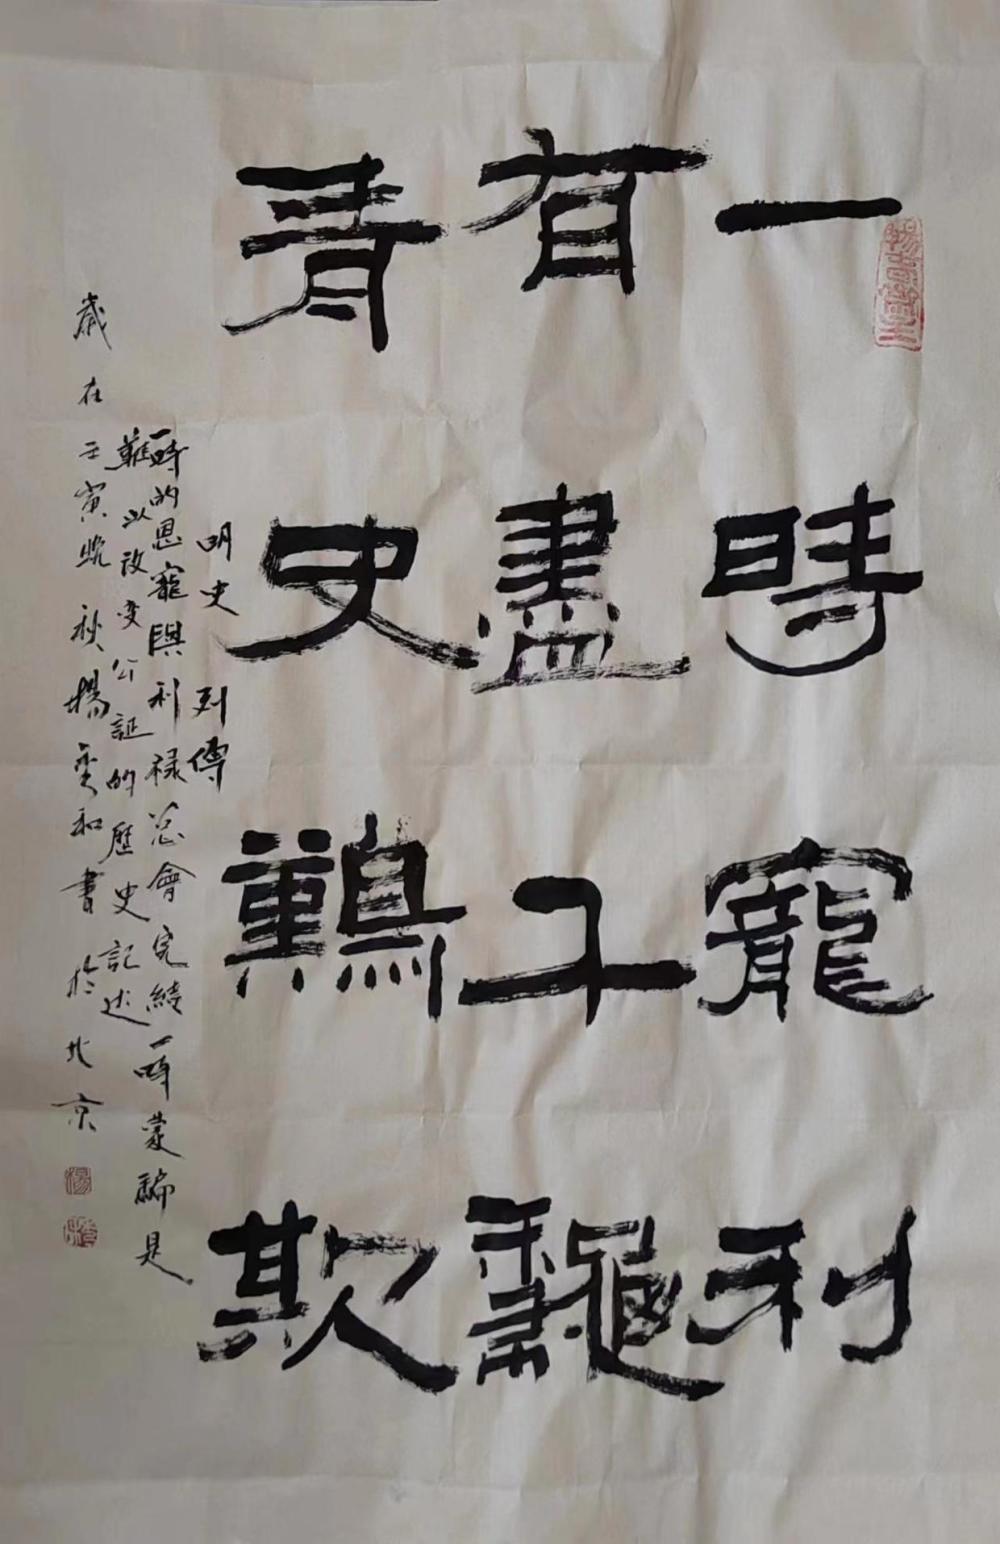 一時寵利
有盡千龝
青史難欺
明史列傳
一時的恩寵與利禄总會完結一時蒙騙是
難以改变公証的歷史記述
歲在壬寅晚秋楊和書於北京